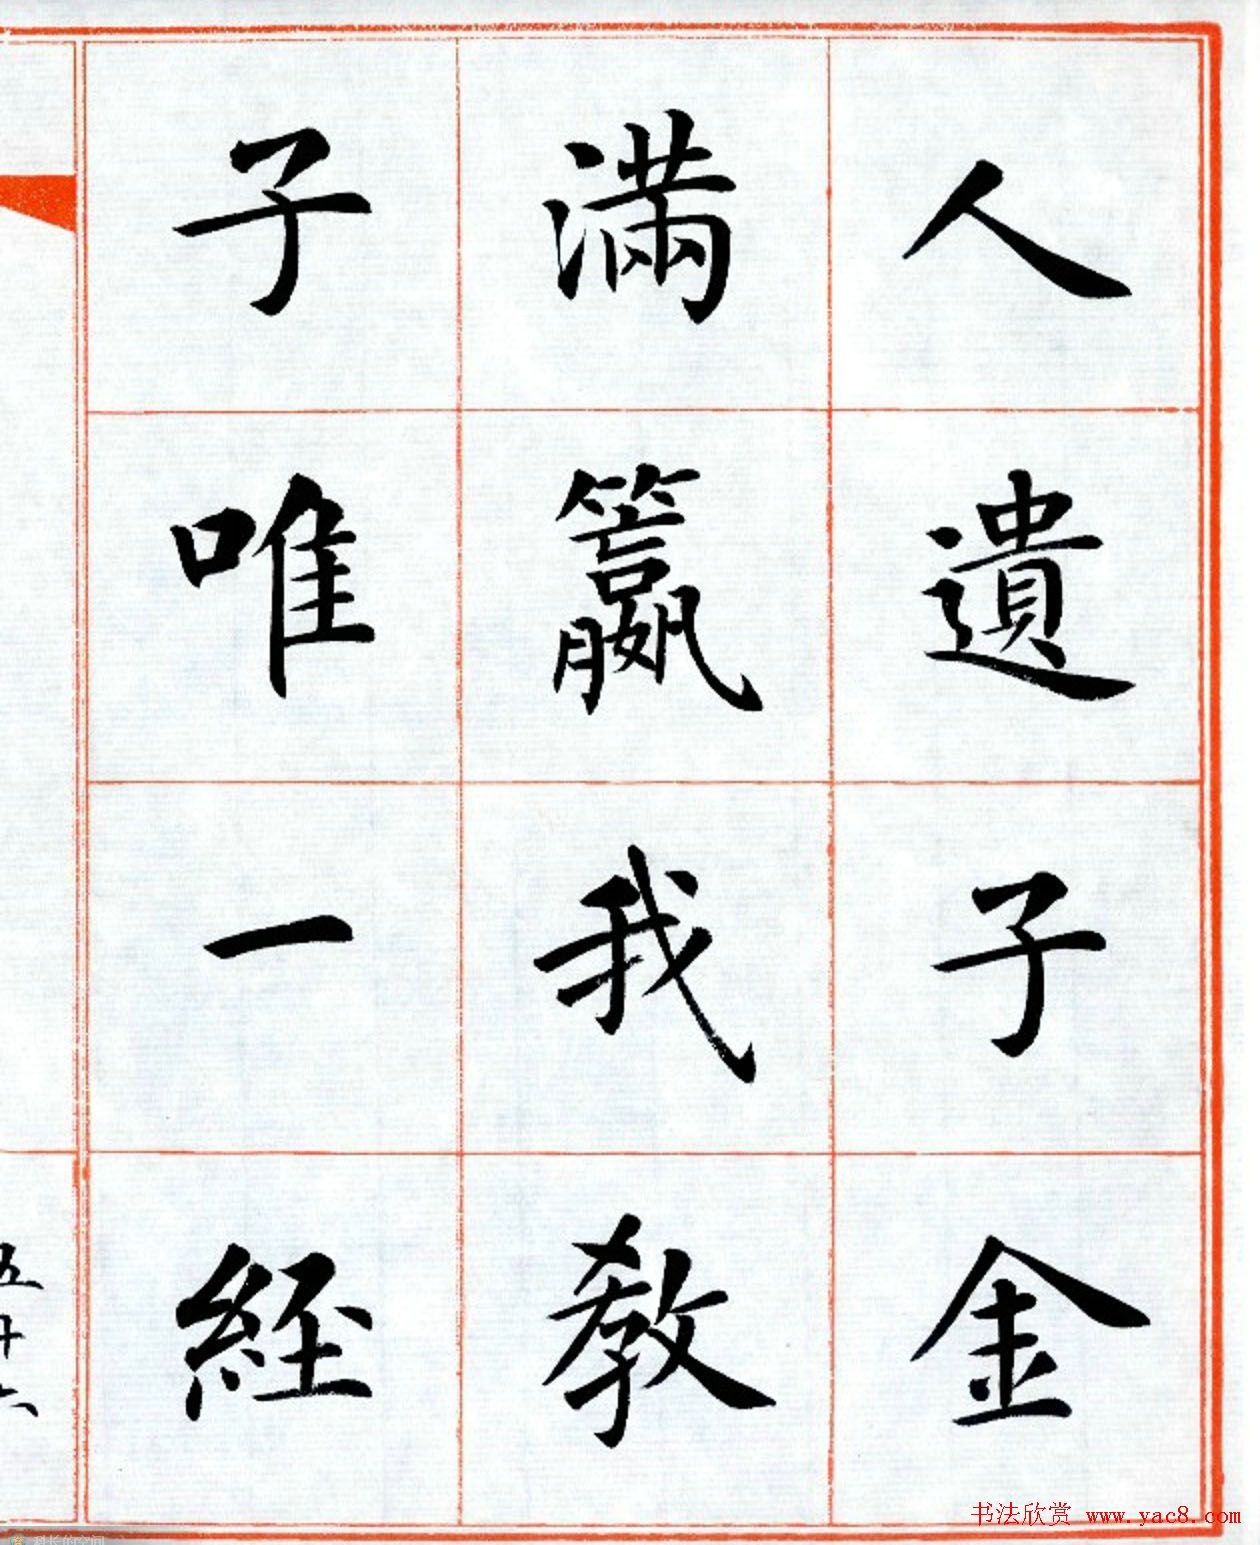 人遺子金
滿籝我教
子唯一經
五十六
书法欣赏 www.yac8.com